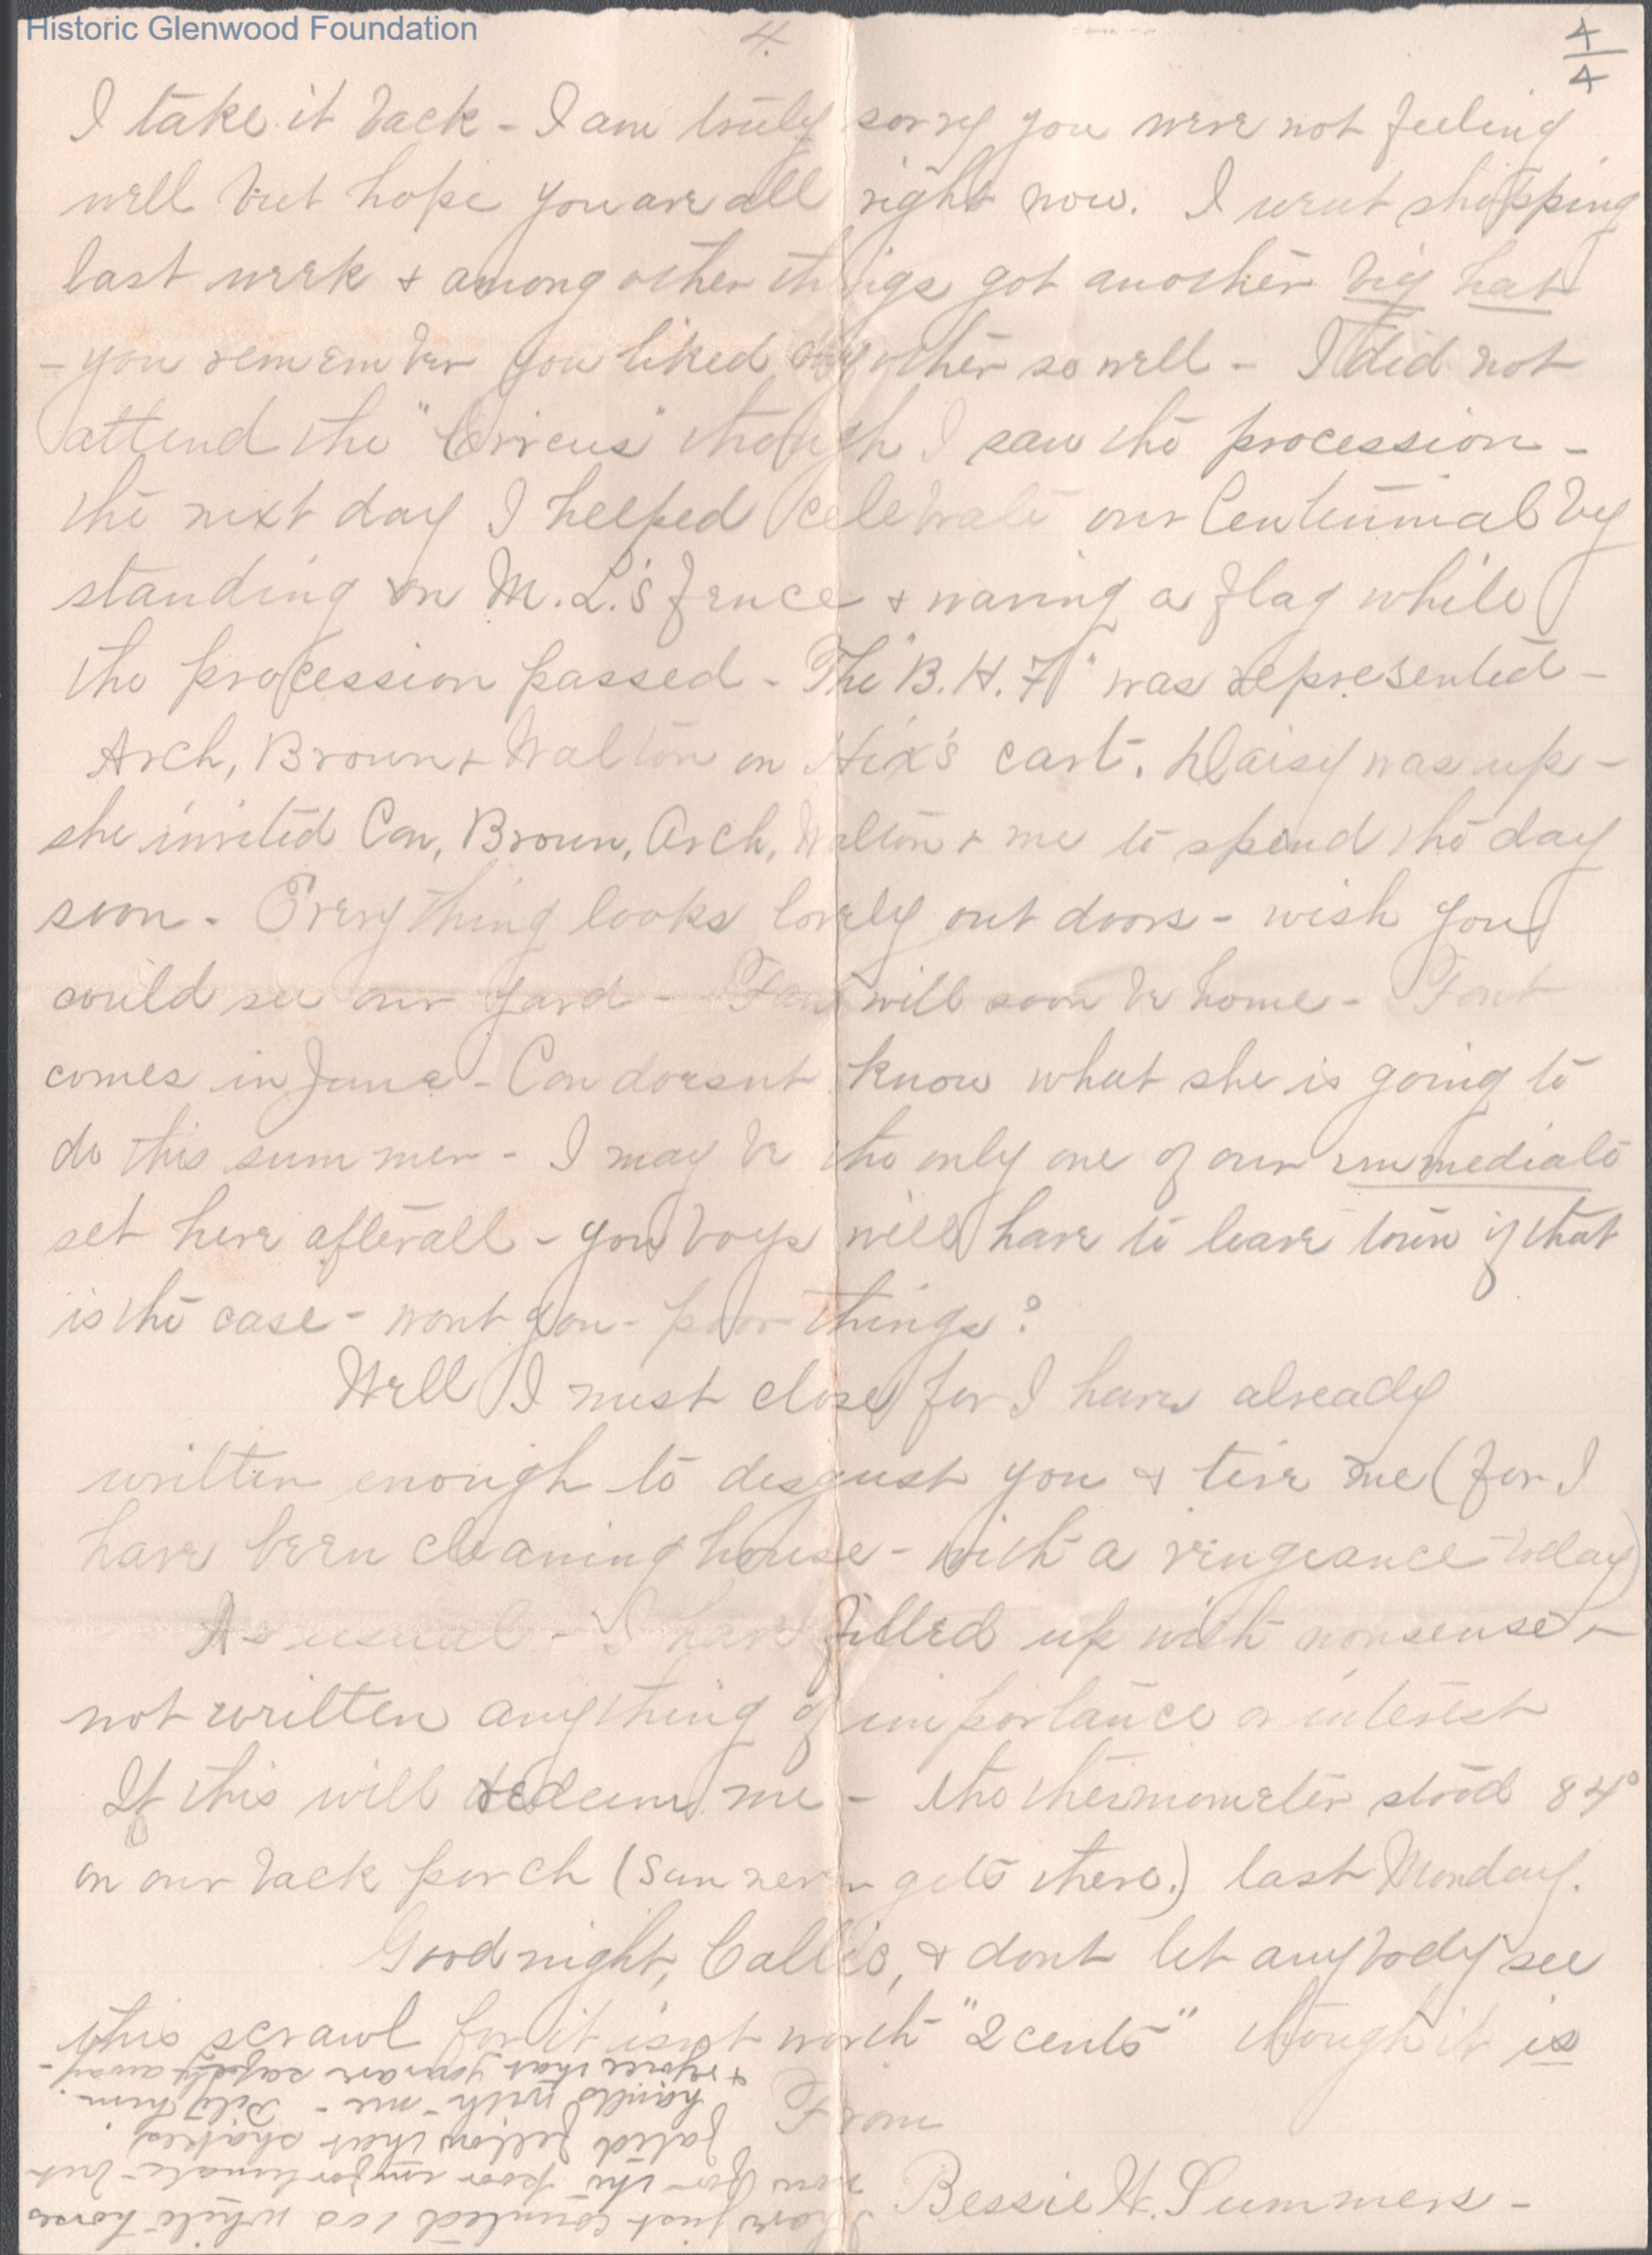 Historic Glenwood Foundation
4.
4/4
I take it back - I am truly sorry you were not feeling
well but hope you are all right now. I went shopping
last week & among other things got another big hat
- you remember you liked my other so well - I did not
attend the "Circus" though I saw the procession -
the next day I helped celebrate our Centennial by
standing on M.L.'s fence & waving a flag while
the procession passed - The "B.H.F" was represented -
Arch, Brown & Walton on Hix's cart. Daisy was up -
she invited Con, Brown, Arch, Walton & me to spend the day
soon - Everything looks lovely out doors - wish you
could see our yard - will soon be home -
comes in June - Con doesnt know what she is going to
do this summer - I may be the only one of our immediate
set here afterall - you boys will have to leave town if that
is the case - wont you - poor things?
Well I must close for I have already
written enough to disgust you & tire me (for I
have been cleaning house - with a vengeance today)
As usual - I have filled up with nonsense -
not written anything of importance or interest
If this will redeem me - the thermometer stood 84°
on our back porch (sun never gets there.) last Monday.
Goodnight, Callie, & dont let anybody see
this scrawl for it isnt worth "2 cents" though it is
From
Bessie H. Summers -
I have just counted 100 white horses
now for the poor unfortunate - but
fated fellow that shakes
hands with me - Pity him.
& rejoice that you are safely away -